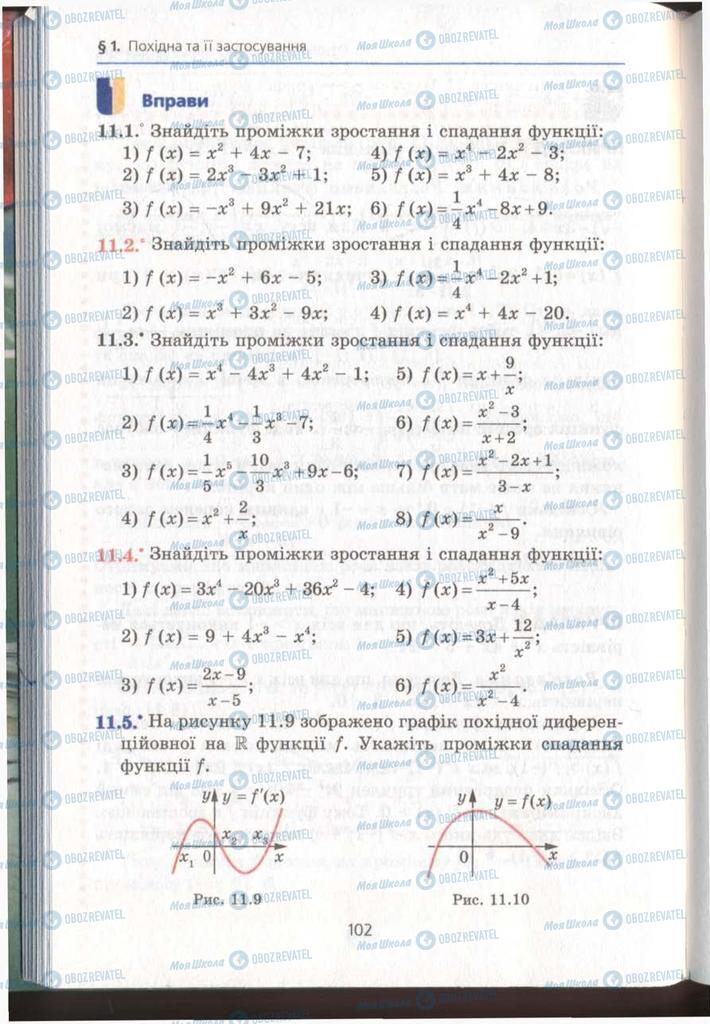 § 1. Похідна та її застосування
Вправи
11.1.° Знайдіть проміжки зростання і спадання функції:
1) f (x) = x² + 4x − 7; 4) f (x) = x⁴ − 2x² − 3;
2) f (x) = 2x³ − 3x² + 1; 5) f (x) = x³ + 4x − 8;
3) f (x) = −x³ + 9x² + 21x; 6) f (x) = 1/4 x⁴ − 8x + 9.
11.2.° Знайдіть проміжки зростання і спадання функції:
1) f (x) = −x² + 6x − 5; 3) f (x) = 1/4 x⁴ − 2x² + 1;
2) f (x) = x³ + 3x² − 9x; 4) f (x) = x⁴ + 4x − 20.
11.3.• Знайдіть проміжки зростання і спадання функції:
1) f (x) = x⁴ − 4x³ + 4x² − 1; 5) f (x) = x + 9/x;
2) f (x) = 1/4 x⁴ − 1/3 x³ − 7; 6) f (x) = (x² − 3)/(x + 2);
3) f (x) = 1/5 x⁵ − 10/3 x³ + 9x − 6; 7) f (x) = (x² − 2x + 1)/(3 − x);
4) f (x) = x² + 2/x; 8) f (x) = x/(x² − 9).
11.4.• Знайдіть проміжки зростання і спадання функції:
1) f (x) = 3x⁴ − 20x³ + 36x² − 4; 4) f (x) = (x² + 5x)/(x − 4);
2) f (x) = 9 + 4x³ − x⁴; 5) f (x) = 3x + 12/x²;
3) f (x) = (2x − 9)/(x − 5); 6) f (x) = x²/(x² − 4).
11.5.• На рисунку 11.9 зображено графік похідної диферен-
ційовної на ℝ функції f. Укажіть проміжки спадання
функції f.
y y = f′(x) x₁ 0 x₂ x₃ x
y y = f(x) 0 x
Рис. 11.9 Рис. 11.10
102
Моя Школа OBOZREVATEL